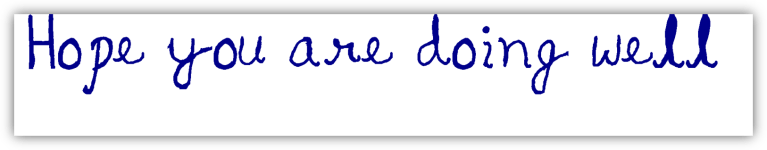 Hope you are doing well